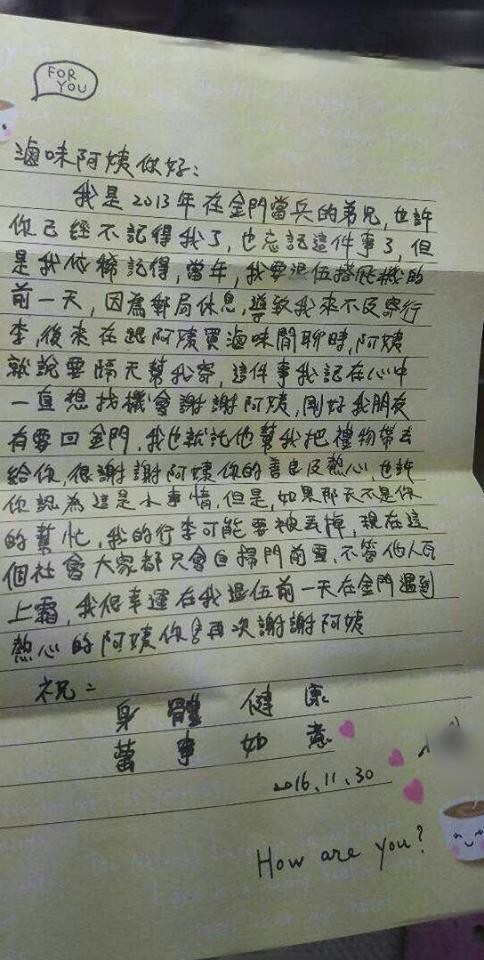 FOR
YOU
滷味阿姨你好:
我是2013年在金門當兵的弟兄,也許
你已經不記得我了,也忘記這件事了,但
是我依稀記得,當年,我要退伍搭飛機的
前一天,因為郵局休息,導致我來不及寄行
李,後來在跟阿姨買滷味閒聊時,阿姨
就說要隔天幫我寄,這件事我記在心中
一直想找機會謝謝阿姨,剛好我朋友
有要回金門,我也就託他幫我把禮物帶去
給你,很謝謝阿姨你的善良及熱心,也許
你認為這是小事情,但是,如果那天不是你
的幫忙,我的行李可能要被丟掉,現在這
個社會大家都只會自掃門前雪,不管他人瓦
上霜,我很幸運在我退伍前一天在金門遇到
熱心的阿姨你!再次謝謝阿姨
祝:
身體健康
萬事如意
2016.11.30
How are you?